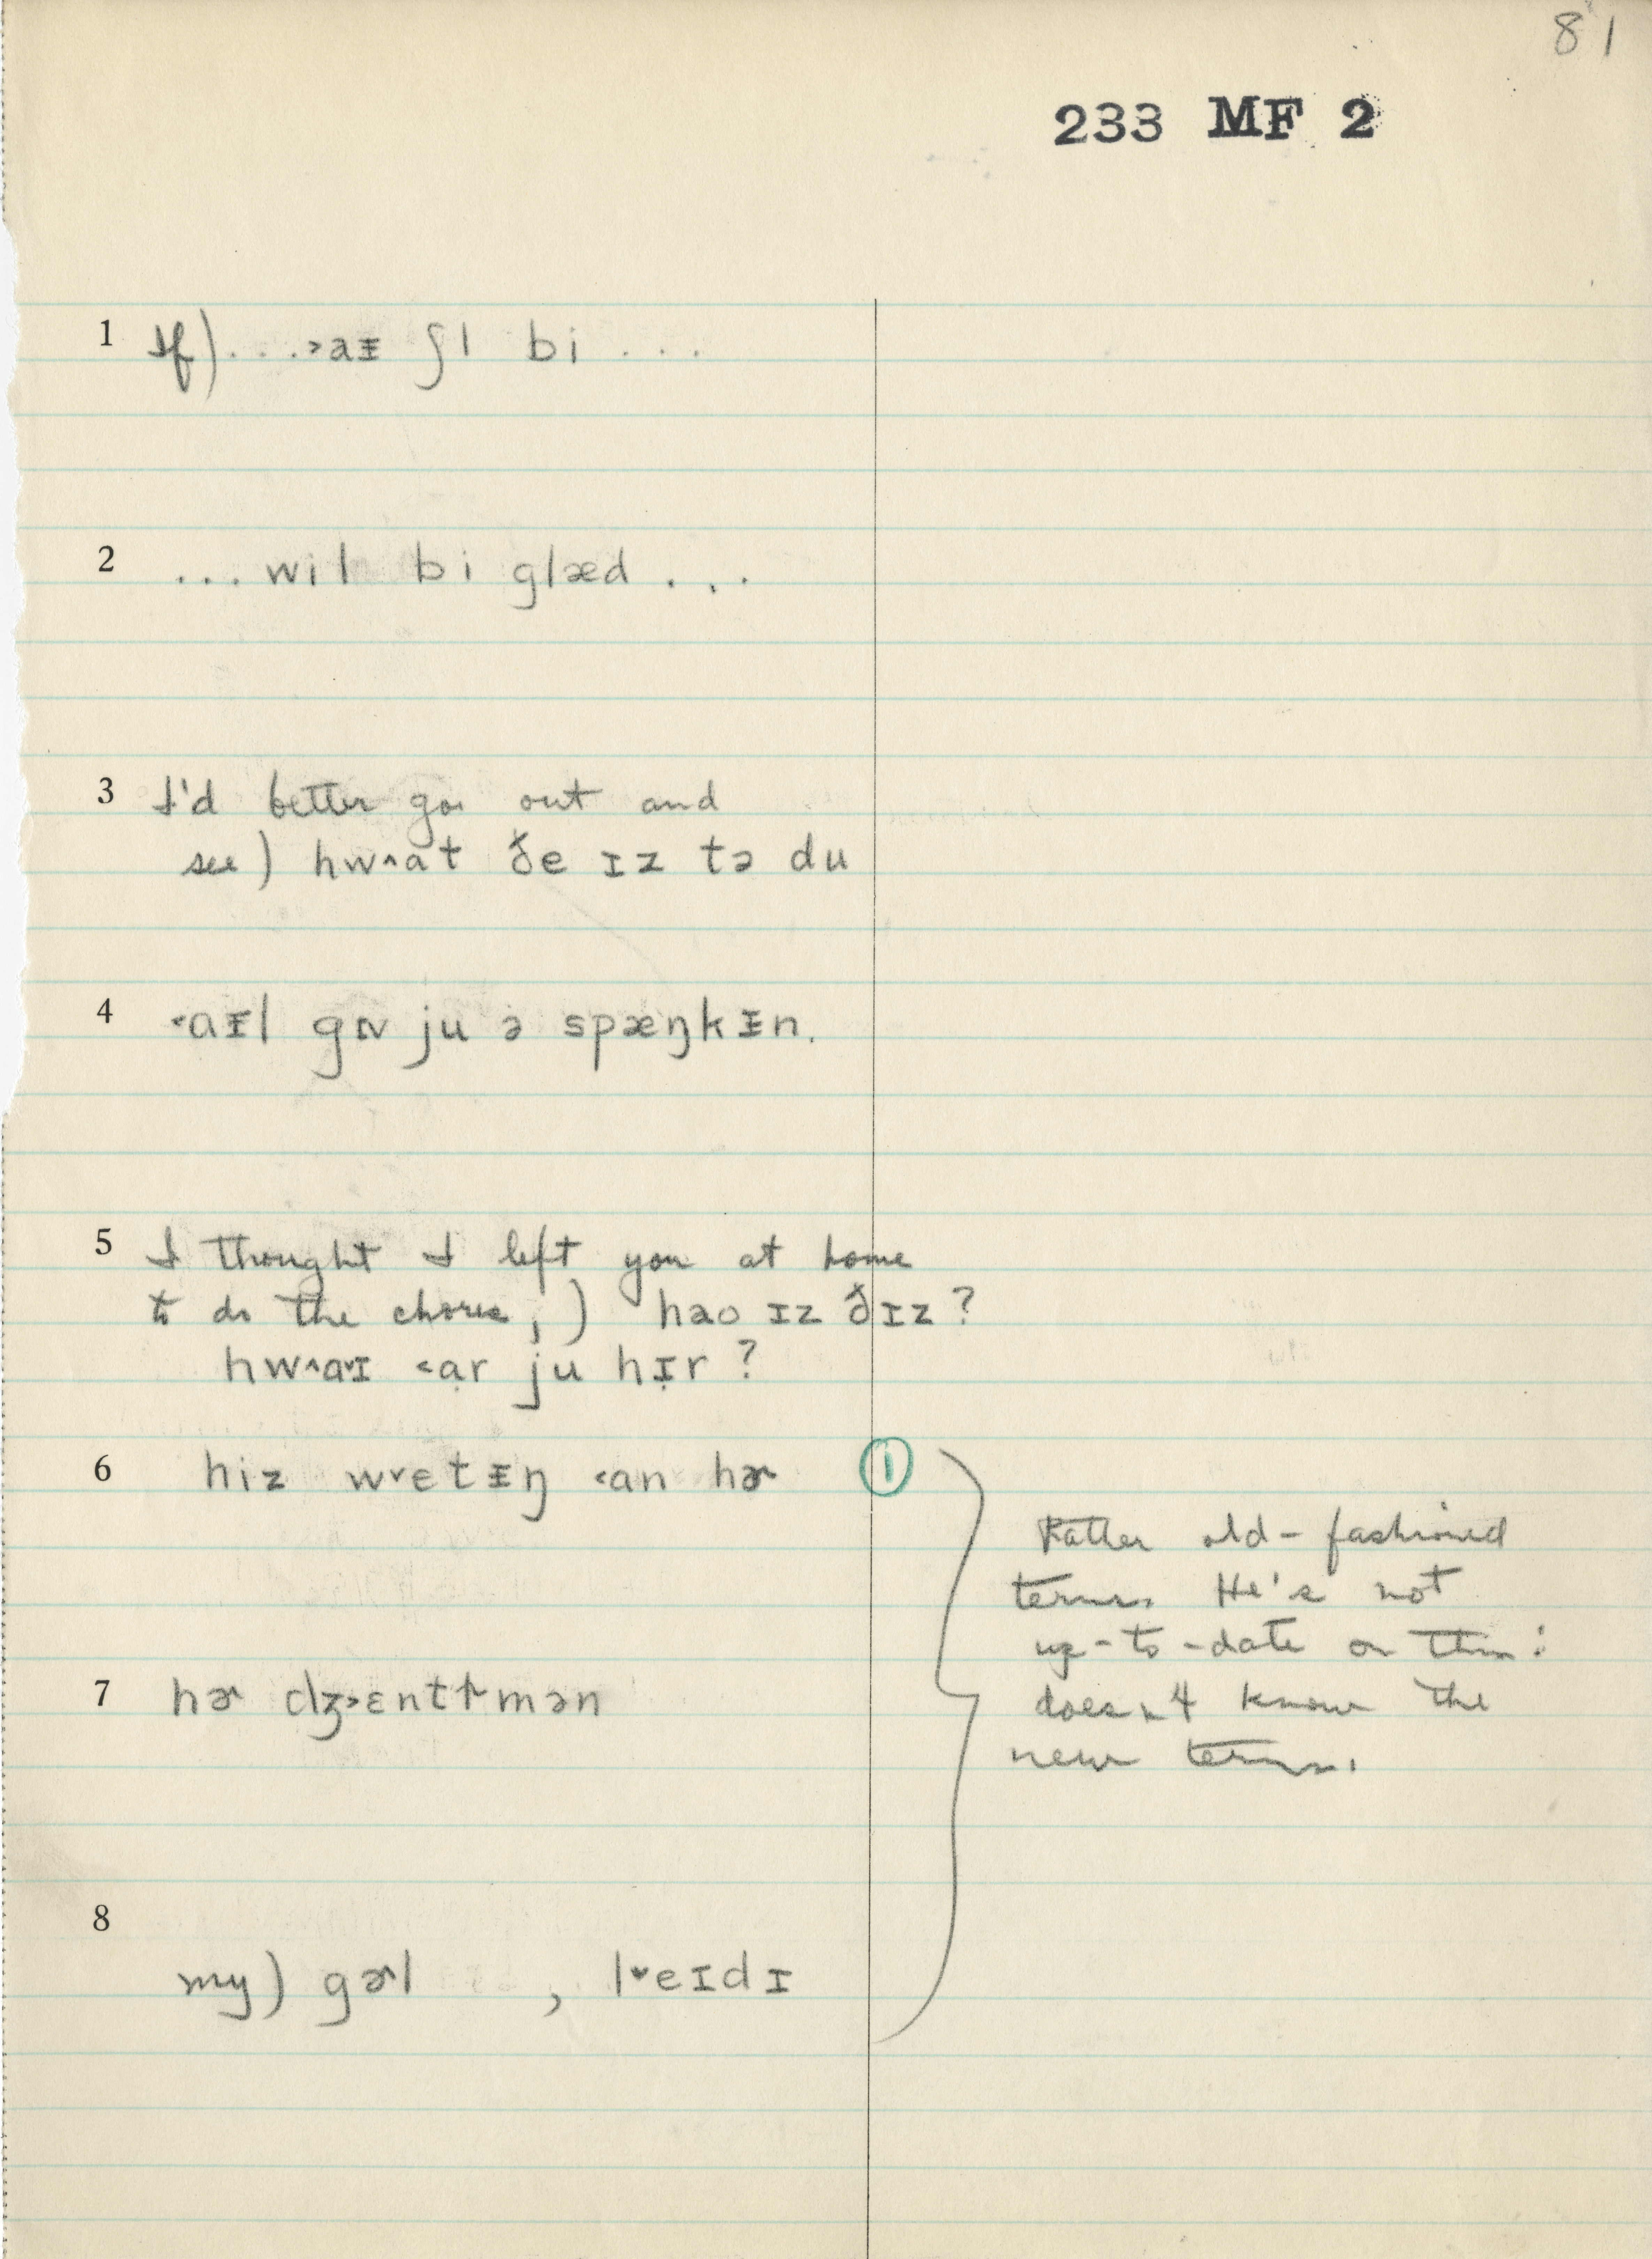 81
233 MF 2
1 If) . . . ˃aᵻ ʃl bi . . .
2 . . . wil bi glæd . . .
3 I'd better go out and
see) hw^at ðe ɪz tə du
4 ˂aᵻl ju ə spæŋkᵻn.
5 I thought I left you at home
to do the chores,) hao ɪz ðɪz?
hw^a˅ɪ ˂ạr ju hɪ̣r?
6 hiz w˅etᵻŋ ˂an hɚ ①
Rather old-fashioned
terms. He's not
up-to-date on this:
doesn't know the
new terms.
7 hɚ mən
8
my) gɚl , l˅eɪdɪ